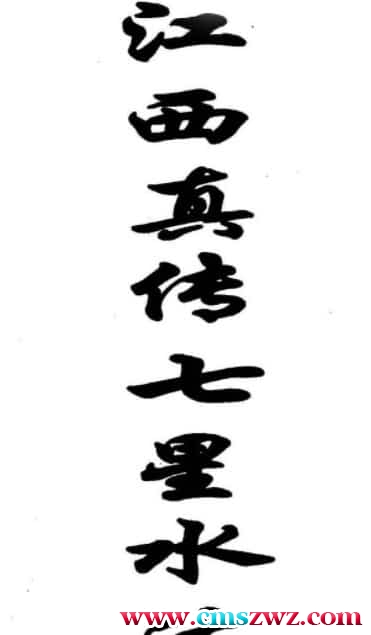 江西真传七星水
www.cmszwz.com